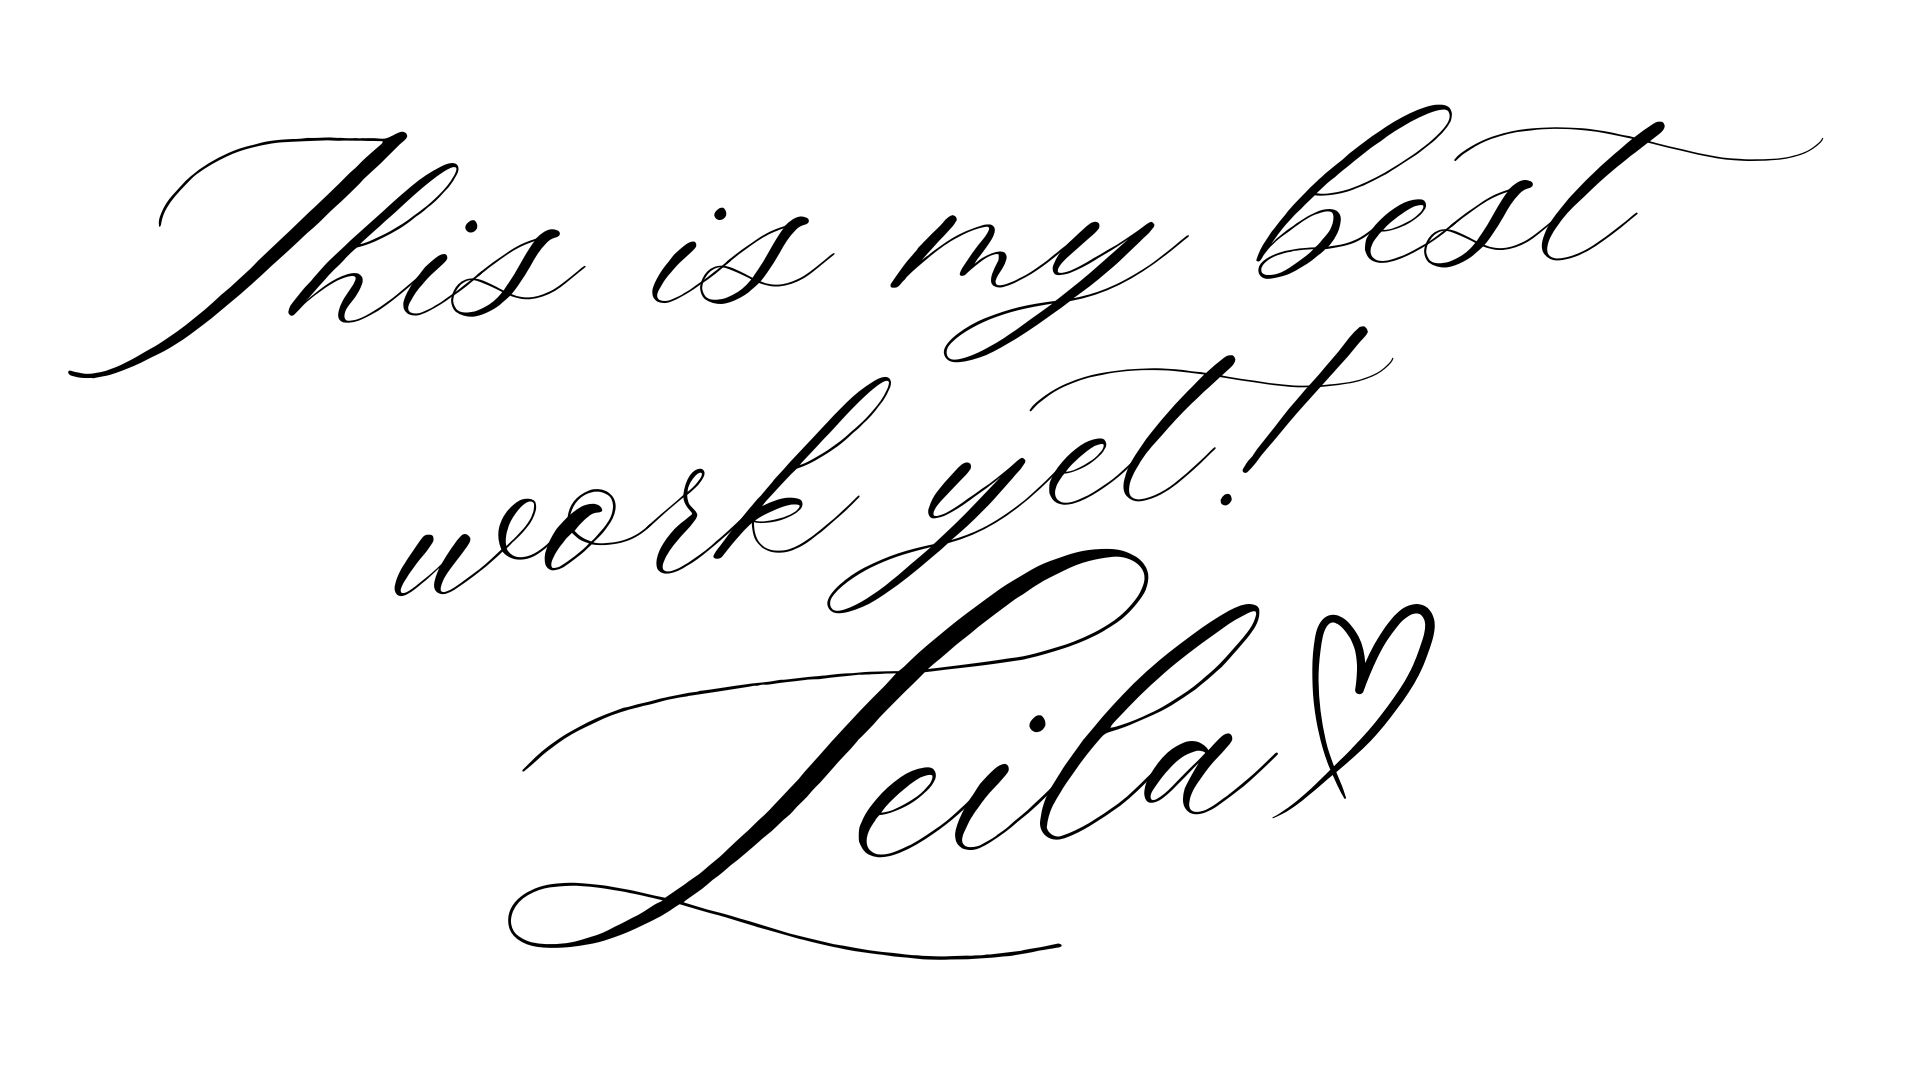 This is my best
work yet!
Leila